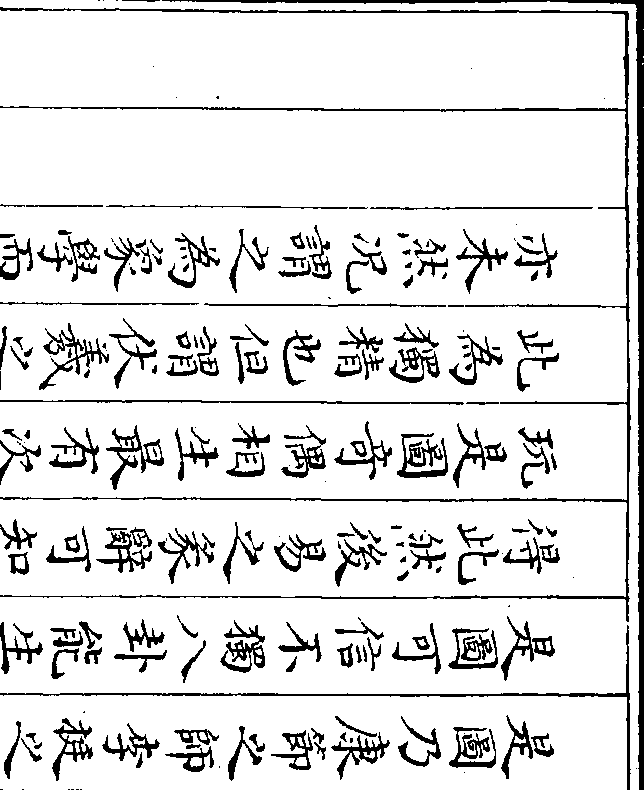 是圖乃康節之師李挺之
是圖可信不獨八卦能生
得此然後易之彖辭可知
玩是圖奇偶相生最有次
此為獨精也但謂伏羲之
亦未然況謂之為彖學而